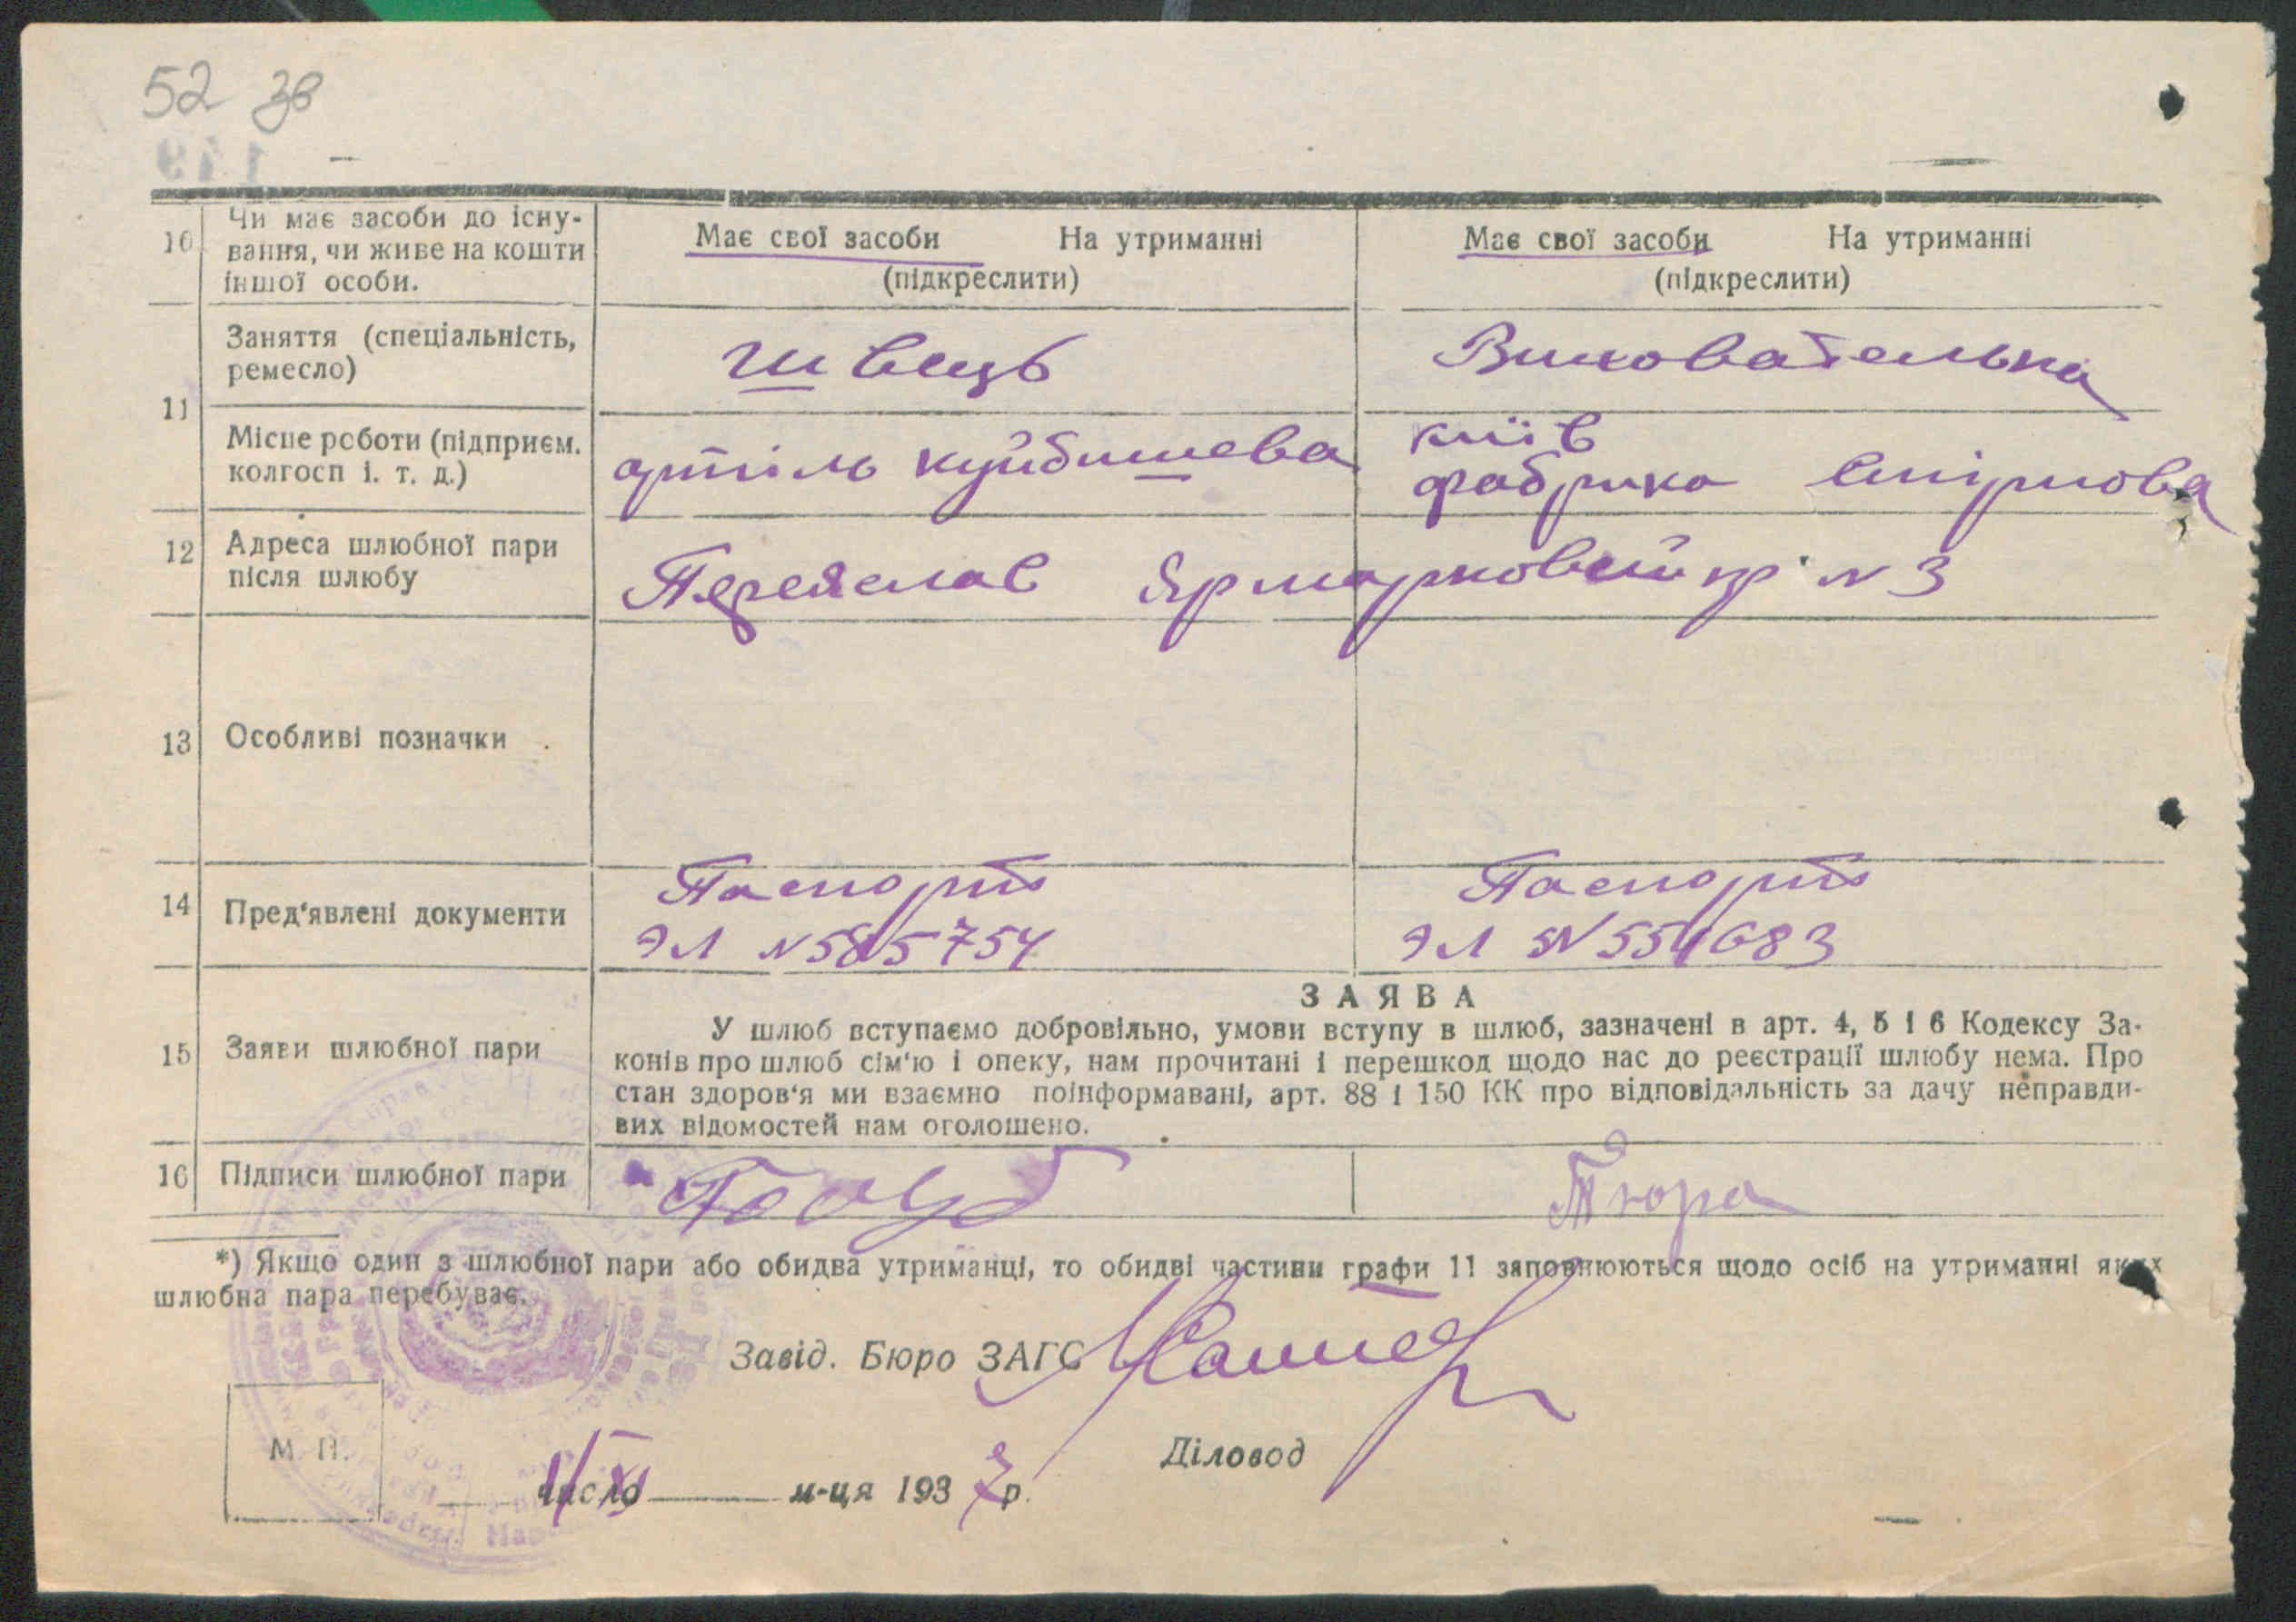 52 зв
10 Чи має засоби до існу-
вання, чи живе на кошти
іншої особи.
Має свої засоби На утриманні
(підкреслити)
Має свої засоби На утриманні
(підкреслити)
11 Заняття (спеціальність,
ремесло)
швець
Вихователька
Місце роботи (підприєм.
колгосп і. т. д.)
артіль куйбишева
київ
фабрика Смірнова
12 Адреса шлюбної пари
після шлюбу
Переяслав Ярмарковий пр N 3
13 Особливі позначки
14 Пред'явлені документи
Паспорт
ЭЛ N 585754
Паспорт
ЭЛ N 551683
15 Заяви шлюбної пари
ЗАЯВА
У шлюб вступаємо добровільно, умови вступу в шлюб, зазначені в арт. 4, 5 і 6 Кодексу За-
конів про шлюб сім'ю і опеку, нам прочитані і перешкод щодо нас до реєстрації шлюбу нема. Про
стан здоров'я ми взаємно поінформавані, арт. 88 і 150 КК про відповідальність за дачу неправди-
вих відомостей нам оголошено.
16 Підписи шлюбної пари
Тюра
*) Якщо один з шлюбної пари або обидва утриманці, то обидві частини графи 11 заповнюються щодо осіб на утриманні яких
шлюбна пара перебуває.
Завід. Бюро ЗАГС
М. П.
Діловод
1/XI число м-ця 1937 р.